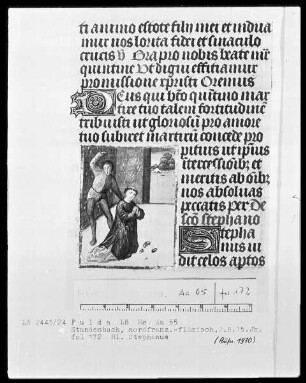 ti animo estote filij mei et indua
mur nos lorica fidei et signaculo
crucis V Ora pro nobis beate mar
quintine Vt digni efficiamur
promissione xpristi Oremus
Deus qui beato quintino mar
tire tuo talem fortitudinē
tribuisti ut gloriosū pro amore
tuo subiret martirium concede pro
pitius ut ipius
ītercessioībʒ et
meritis ab oībʒ
nos absoluas
peccatis per De
scō stephano
Stepha
nus ui
dit celos aptos
Aa 65 fol 172
LA 2441/24 Fulda LB Hs. Aa 65
Stundenbuch, nordfranz.-flämisch, 2.H.15.Jh.
fol 172 Hl. Stephanus
(Aufn. 1970)